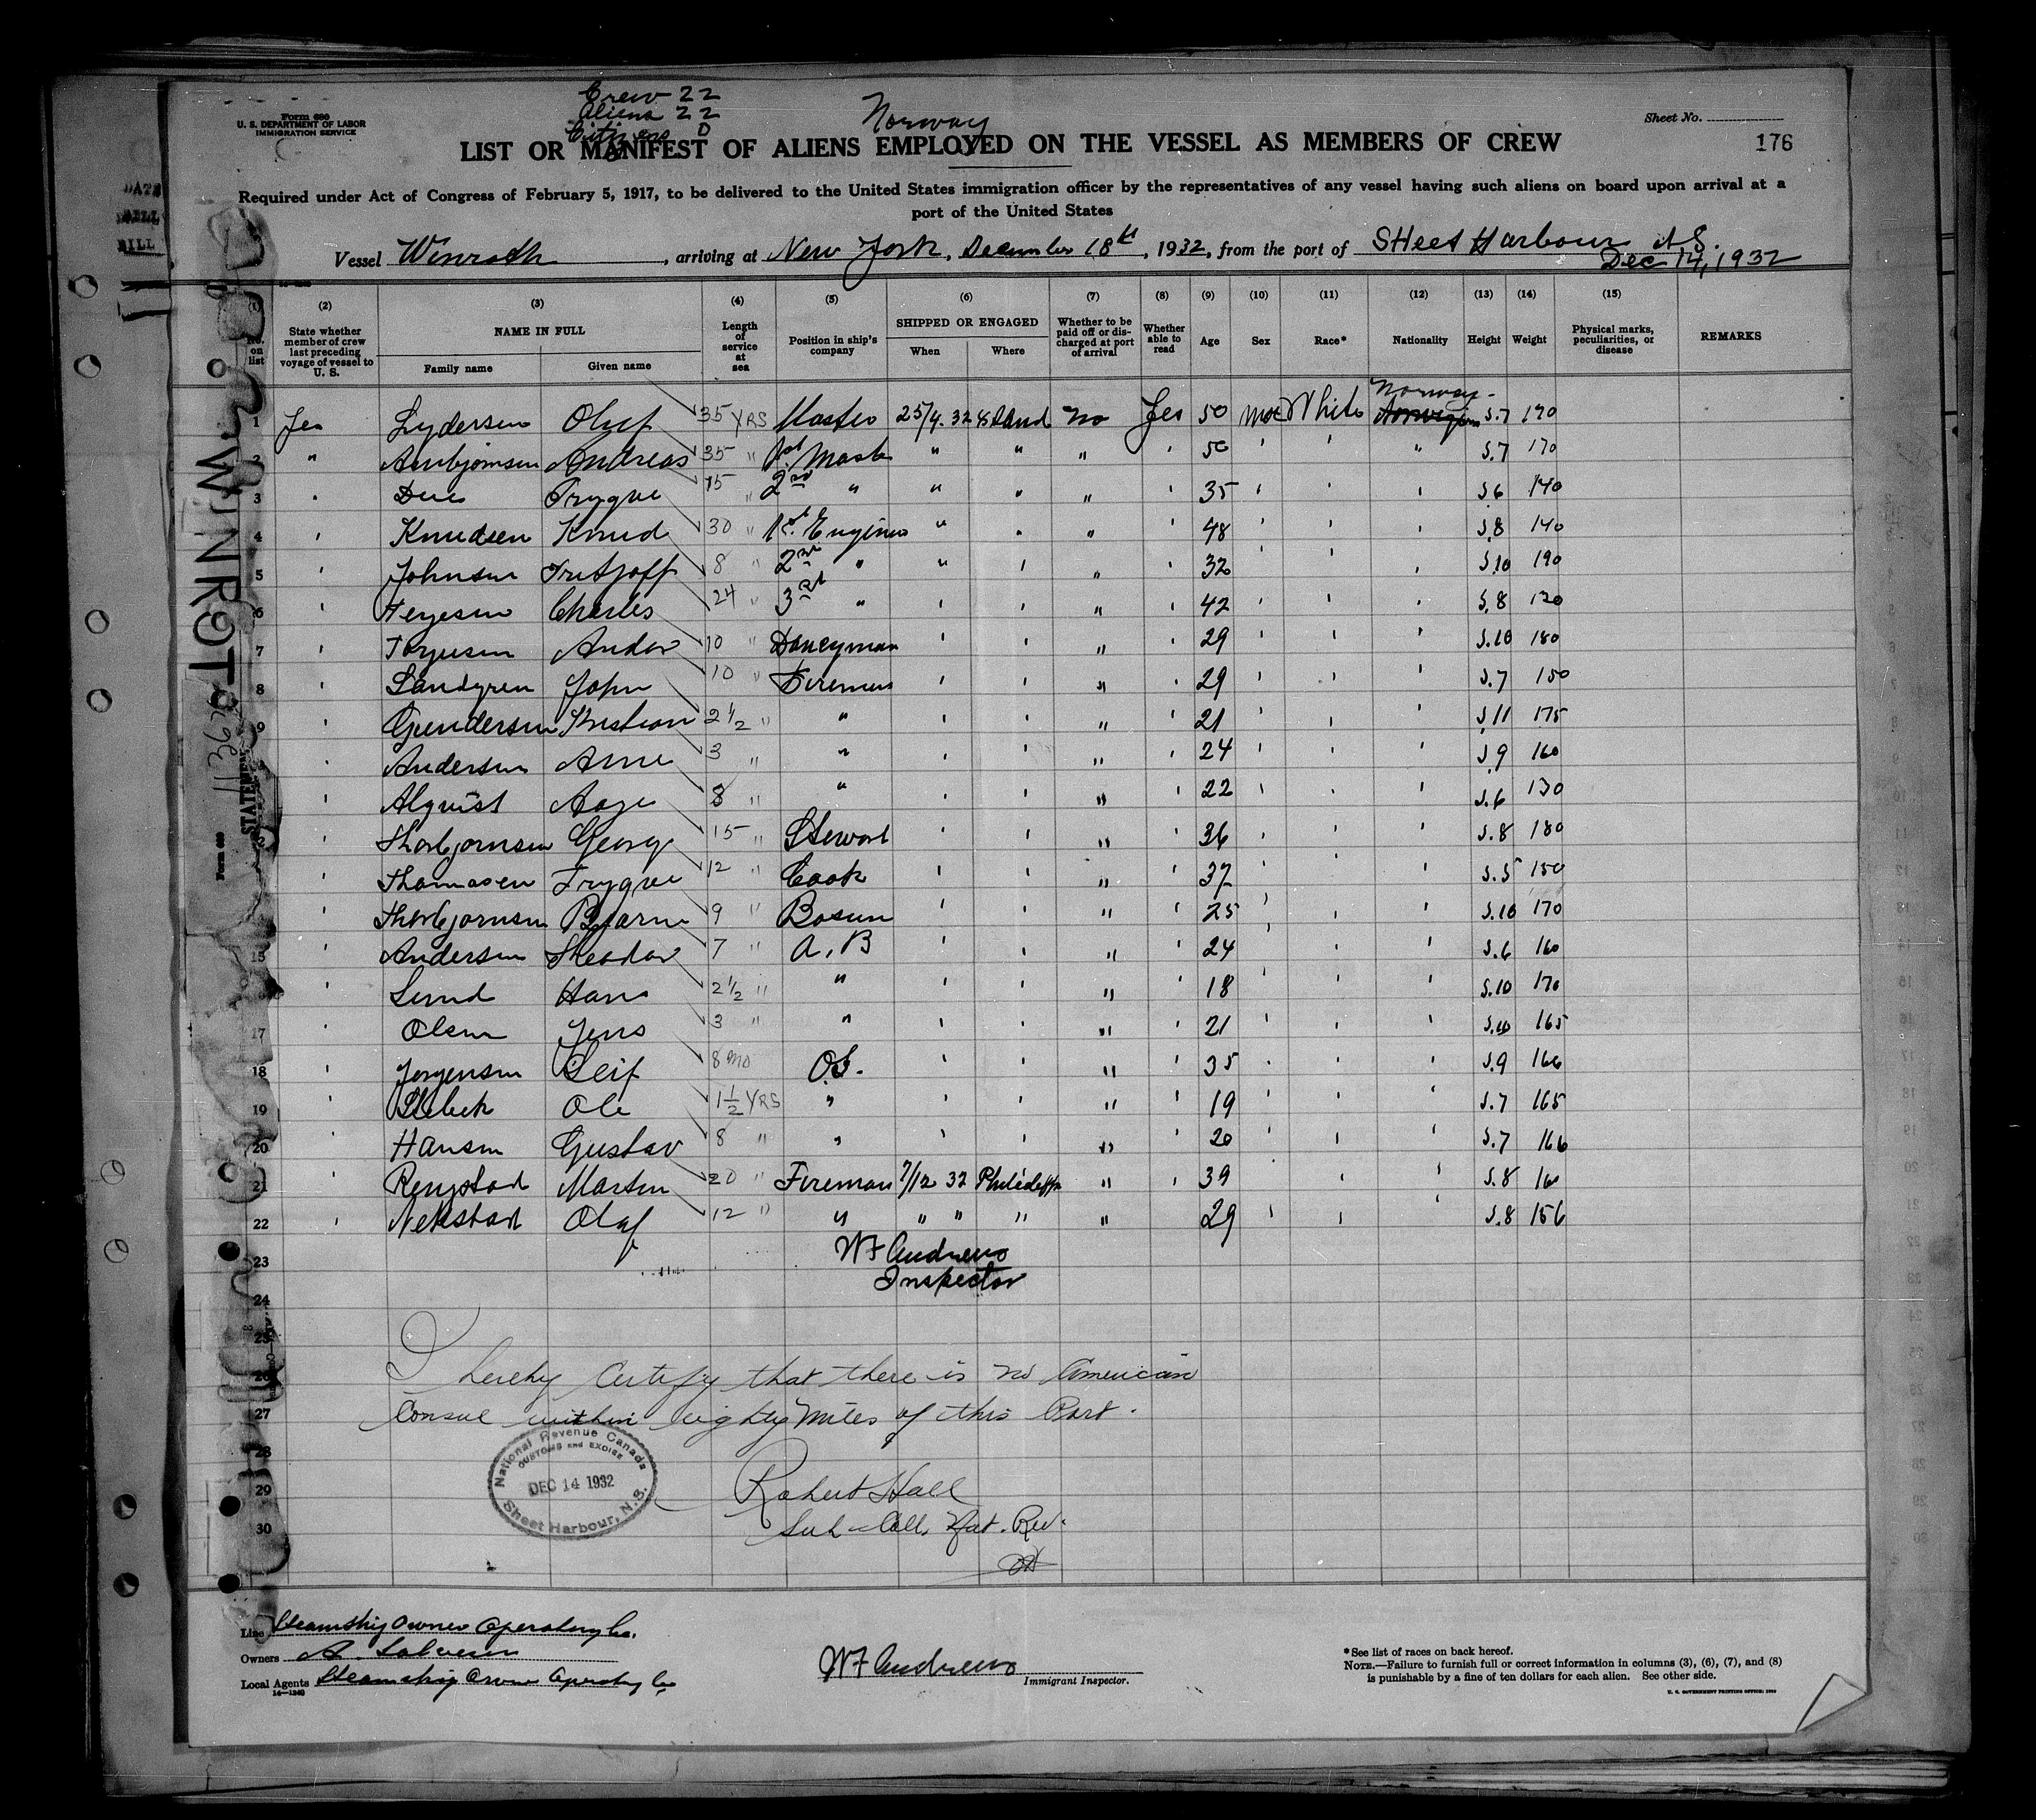 Crew 22
Aliens 22
Citizens 0
Norway
Form 680
U. S. DEPARTMENT OF LABOR
IMMIGRATION SERVICE
Sheet No.
176
LIST OR MANIFEST OF ALIENS EMPLOYED ON THE VESSEL AS MEMBERS OF CREW
Required under Act of Congress of February 5, 1917, to be delivered to the United States immigration officer by the representatives of any vessel having such aliens on board upon arrival at a
port of the United States
Vessel Winroth, arriving at New York, December 18th, 1932, from the port of SHeet Harbour N.S.
Dec 14, 1932
(1) (2) (3) (4) (5) (6) (7) (8) (9) (10) (11) (12) (13) (14) (15)
No. on list
State whether member of crew last preceding voyage of vessel to U. S.
NAME IN FULL
Family name
Given name
Length of service at sea
Position in ship's company
SHIPPED OR ENGAGED
When
Where
Whether to be paid off or discharged at port of arrival
Whether able to read
Age
Sex
Race*
Nationality
Height
Weight
Physical marks, peculiarities, or disease
REMARKS
1 Yes Lydersen Oluf 35 YRS Master 25/4. 32 No Yes 50 White Norway 5.7 190
2 " Andreas 35 " 1st Mate " " " ' 50 ' ' " 5.7 170
3 Trygve 15 " 2nd " " " 35 ' ' ' 5.6 140
4 ' Knudsen Knud 30 " 1st " " ' 48 ' ' ' 5.8 140
5 ' Johnsen 8 " 2nd " " ' " ' 32 ' ' ' 5.10 190
6 ' Charles 24 " 3rd " ' ' " 42 ' ' ' 5.8 130
7 ' 10 " Donkeyman ' ' " 29 ' ' 5.10 180
8 ' John 10 " Firemen ' ' " ' 29 ' ' ' 5.7 150
9 ' Gundersen Kristian 2 1/2 " " ' ' " ' 21 ' ' 5.11 175
' Andersen Arne 3 " " ' ' " ' 24 ' ' ' 5.9 160
' Alquist Aage 8 " " ' ' " ' 22 ' ' ' 5.6 130
' Thorbjornsen George 15 " ' ' " ' 36 ' ' ' 5.8 180
' Thomasen Trygve 12 " Cook ' ' " ' 37 ' ' ' 5.5 150
' Thorbjornsen Bjarne 9 " Bosun ' ' " ' 25 ' ' ' 5.10 170
15 ' Andersen Theodor 7 " A. B ' ' " ' 24 ' ' ' 5.6 160
' Lund Hans 2 1/2 " " ' ' " ' 18 ' ' ' 5.10 170
17 ' Olsen Jens 3 " " ' ' " ' 21 ' ' ' 5.10 165
18 ' Jorgensen Leif 8 mo O.S. ' ' " ' 35 ' ' ' 5.9
19 ' Ole 1 1/2 YRS " ' ' " ' 19 ' ' ' 5.7 165
20 ' Hansen Gustav 8 " " ' ' " ' 20 ' ' ' 5.7
21 ' Martin 20 " Fireman 7/12 32 " ' 39 ' ' 5.8 160
22 ' Olaf 12 " " " " " " 29 ' ' 5.8 156
23
24
25
26
27
28
29
30
W F Andrews
Inspector
I hereby Certify that there is no American
Consul within eighty miles of this Port.
National Revenue Canada
CUSTOMS and EXCISE
DEC 14 1932
Sheet Harbour, N.S.
Robert Hall
Sub-Coll. Nat. Rev.
Line Steamship Owner Operating Co.
Owners A.
Local Agents Steamship Owner Operating Co
14—1240
W F Andrews
Immigrant Inspector.
*See list of races on back hereof.
NOTE.—Failure to furnish full or correct information in columns (3), (6), (7), and (8)
is punishable by a fine of ten dollars for each alien. See other side.
U. S. GOVERNMENT PRINTING OFFICE:
WINROT
STATEMENT
Form 689